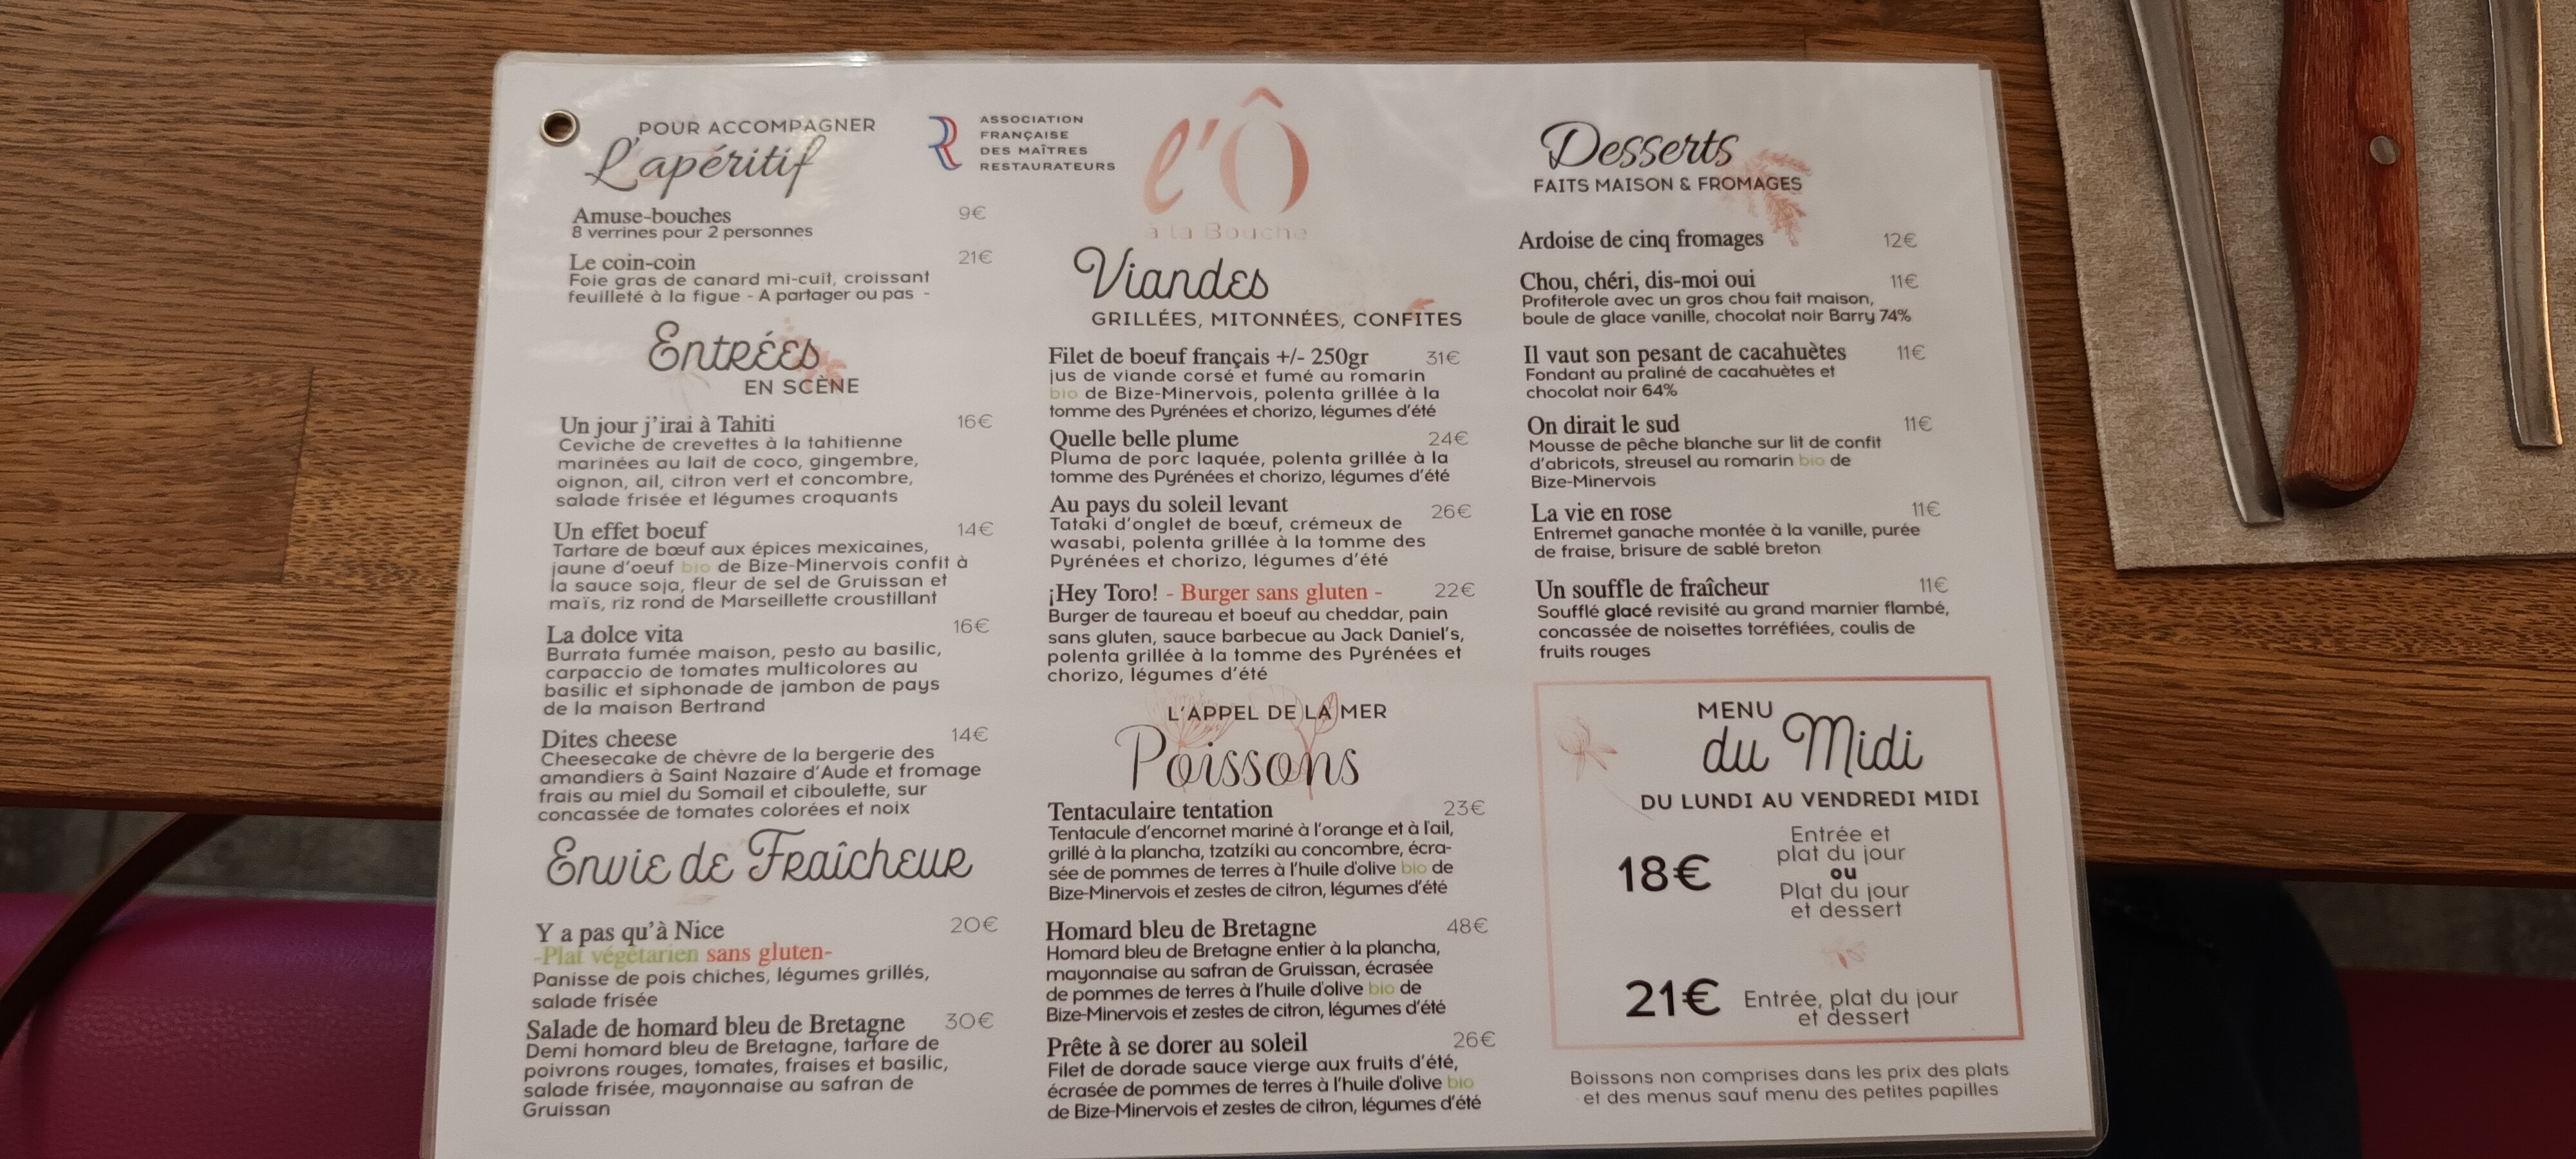 POUR ACCOMPAGNER
L'apéritif
Amuse-bouches 9€
8 verrines pour 2 personnes
Le coin-coin 21€
Foie gras de canard mi-cuit, croissant
feuilleté à la figue - A partager ou pas -
Entrées
EN SCÈNE
Un jour j'irai à Tahiti 16€
Ceviche de crevettes à la tahitienne
marinées au lait de coco, gingembre,
oignon, ail, citron vert et concombre,
salade frisée et légumes croquants
Un effet boeuf 14€
Tartare de bœuf aux épices mexicaines,
jaune d'oeuf bio de Bize-Minervois confit à
la sauce soja, fleur de sel de Gruissan et
maïs, riz rond de Marseillette croustillant
La dolce vita 16€
Burrata fumée maison, pesto au basilic,
carpaccio de tomates multicolores au
basilic et siphonade de jambon de pays
de la maison Bertrand
Dites cheese 14€
Cheesecake de chèvre de la bergerie des
amandiers à Saint Nazaire d'Aude et fromage
frais au miel du Somail et ciboulette, sur
concassée de tomates colorées et noix
Envie de Fraîcheur
Y a pas qu'à Nice 20€
-Plat végétarien sans gluten-
Panisse de pois chiches, légumes grillés,
salade frisée
Salade de homard bleu de Bretagne 30€
Demi homard bleu de Bretagne, tartare de
poivrons rouges, tomates, fraises et basilic,
salade frisée, mayonnaise au safran de
Gruissan
ASSOCIATION
FRANÇAISE
DES MAÎTRES
RESTAURATEURS
l'Ô
à la Bouche
Viandes
GRILLÉES, MITONNÉES, CONFITES
Filet de boeuf français +/- 250gr 31€
jus de viande corsé et fumé au romarin
bio de Bize-Minervois, polenta grillée à la
tomme des Pyrénées et chorizo, légumes d'été
Quelle belle plume 24€
Pluma de porc laquée, polenta grillée à la
tomme des Pyrénées et chorizo, légumes d'été
Au pays du soleil levant 26€
Tataki d'onglet de bœuf, crémeux de
wasabi, polenta grillée à la tomme des
Pyrénées et chorizo, légumes d'été
¡Hey Toro! - Burger sans gluten - 22€
Burger de taureau et boeuf au cheddar, pain
sans gluten, sauce barbecue au Jack Daniel's,
polenta grillée à la tomme des Pyrénées et
chorizo, légumes d'été
L'APPEL DE LA MER
Poissons
Tentaculaire tentation 23€
Tentacule d'encornet mariné à l'orange et à l'ail,
grillé à la plancha, tzatzíki au concombre, écra-
sée de pommes de terres à l'huile d'olive bio de
Bize-Minervois et zestes de citron, légumes d'été
Homard bleu de Bretagne 48€
Homard bleu de Bretagne entier à la plancha,
mayonnaise au safran de Gruissan, écrasée
de pommes de terres à l'huile d'olive bio de
Bize-Minervois et zestes de citron, légumes d'été
Prête à se dorer au soleil 26€
Filet de dorade sauce vierge aux fruits d'été,
écrasée de pommes de terres à l'huile d'olive bio
de Bize-Minervois et zestes de citron, légumes d'été
Desserts
FAITS MAISON & FROMAGES
Ardoise de cinq fromages 12€
Chou, chéri, dis-moi oui 11€
Profiterole avec un gros chou fait maison,
boule de glace vanille, chocolat noir Barry 74%
Il vaut son pesant de cacahuètes 11€
Fondant au praliné de cacahuètes et
chocolat noir 64%
On dirait le sud 11€
Mousse de pêche blanche sur lit de confit
d'abricots, streusel au romarin bio de
Bize-Minervois
La vie en rose 11€
Entremet ganache montée à la vanille, purée
de fraise, brisure de sablé breton
Un souffle de fraîcheur 11€
Soufflé glacé revisité au grand marnier flambé,
concassée de noisettes torréfiées, coulis de
fruits rouges
MENU
du Midi
DU LUNDI AU VENDREDI MIDI
18€
Entrée et
plat du jour
ou
Plat du jour
et dessert
21€
Entrée, plat du jour
et dessert
Boissons non comprises dans les prix des plats
et des menus sauf menu des petites papilles